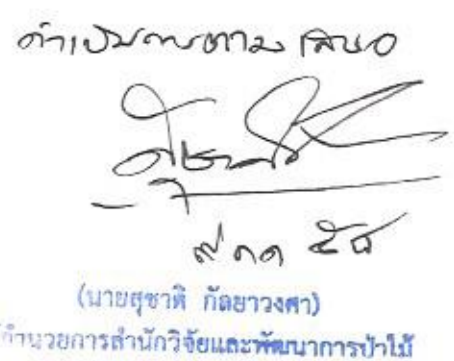 ดำเนินการตามเสนอ
๙ ตค ๕๘
(นายสุชาติ กัลยาวงศา)
อำนวยการสำนักวิจัยและพัฒนาการป่าไม้